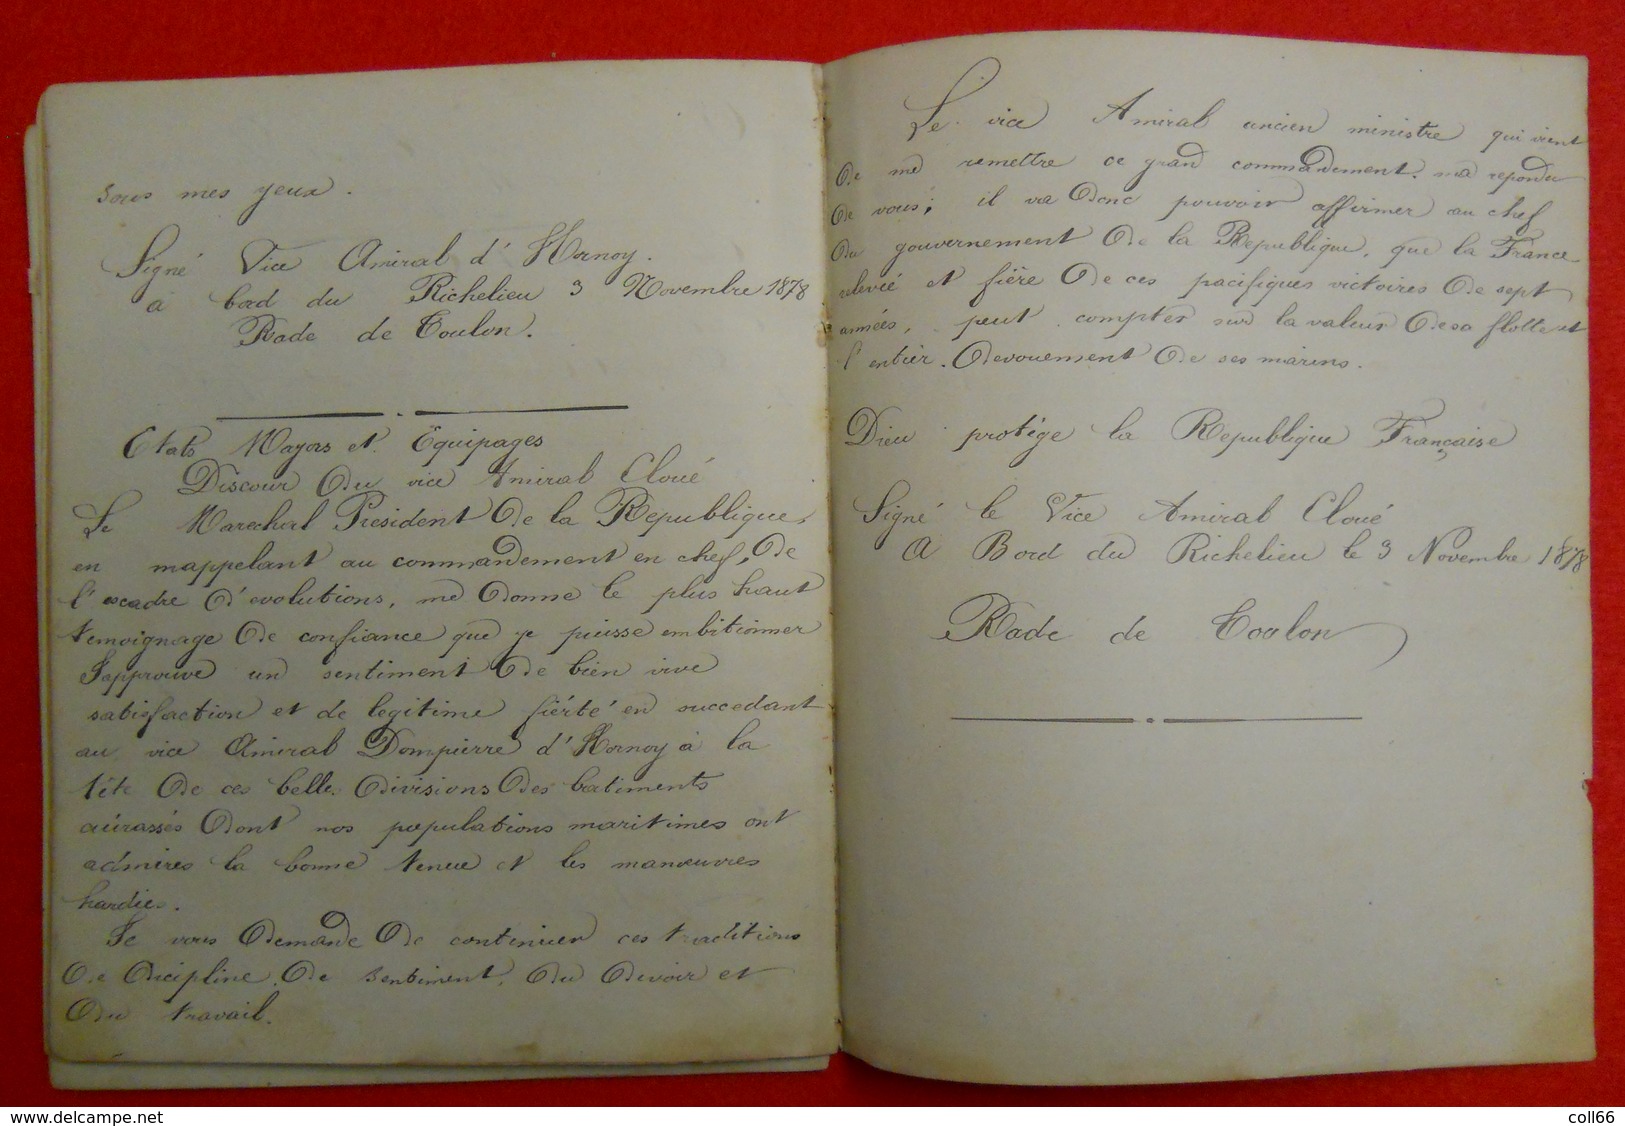 sous mes yeux.
Signé Vice Amiral d'Hornoy.
a bord du Richelieu 3 Novembre 1878
Rade de Toulon.
Etats Mayors et Equipages
Discour du vice Amiral Cloué
Le Marechal President de la Republique,
en mappelant au commandement en chef, de
l'escadre d'evolutions, me donne le plus haut
temoignage de confiance que je puisse embitionner
J'approuve un sentiment de bien vive
satisfaction et de legitime fiérté en succedant
au vice Amiral Dompierre d'Hornoy à la
tête de ces belles divisions des batiments
cuirassés dont nos populations maritimes ont
admirés la bonne tenue et les manœuvres
hardies.
Je vous demande de continuer ces traditions
de dicipline de sentiment, du devoir et
du travail.
Le vice Amiral ancien ministre qui vient
de me remettre ce grand commandement. ma repondu
de vous; il va donc pouvoir affirmer au chef
du gouvernement de la Republique, que la France
relevée et fière de ces pacifiques victoires de sept
années, peut compter sur la valeur de sa flotte et
l'entier devouement de ses marins.
Dieu protège la Republique Française
Signé le Vice Amiral Cloué
A Bord du Richelieu le 3 Novembre 1878
Rade de Toulon
delcampe.net
coll66